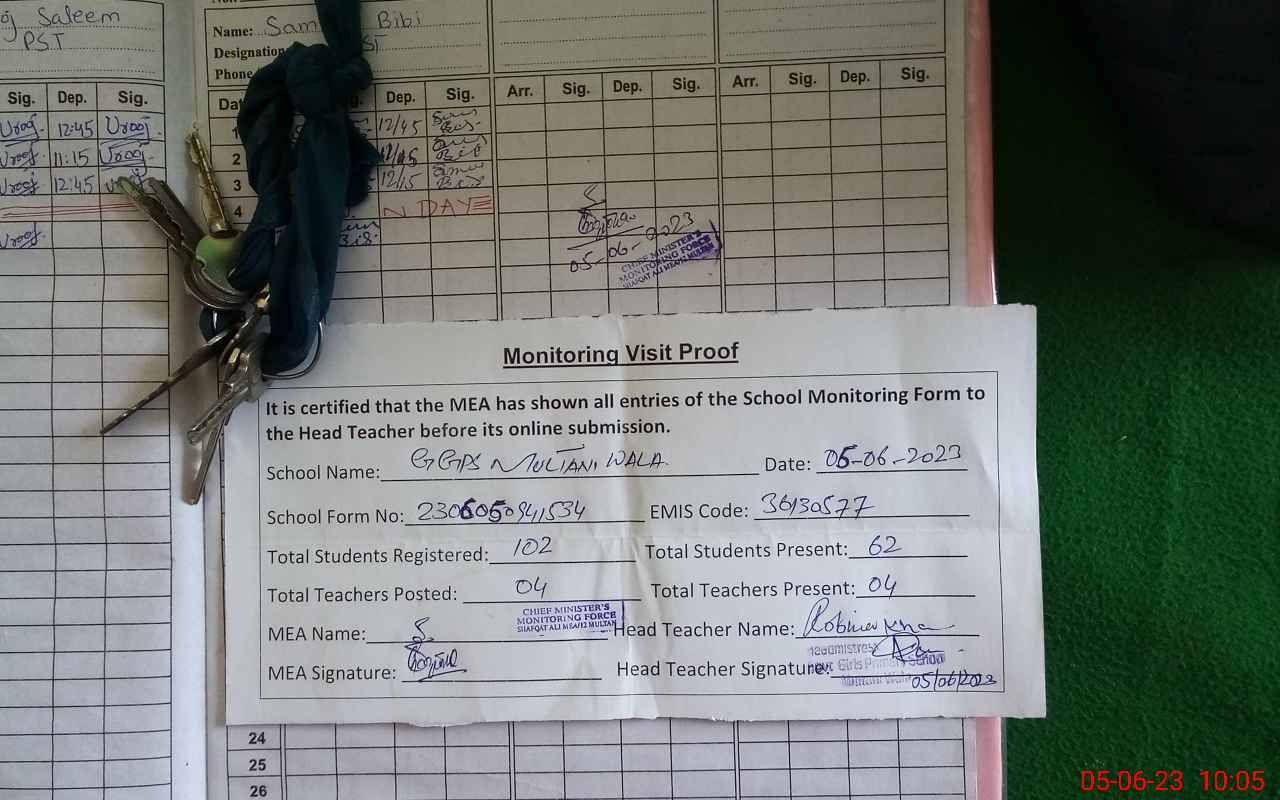 Saleem
PST
Sig. Dep. Sig.
Urooj. 12:45 Urooj.
Urooj. 11:15 Urooj.
Urooj 12:45
Urooj.
Name: Bibi
Designation
Phone
Dep. Sig.
1 12/45
2
3 12/15
4 N DAY
Arr. Sig. Dep. Sig.
Arr. Sig. Dep. Sig.
05-06-2023
CHIEF MINISTER'S
MONITORING FORCE
SHAFQAT ALI MEA/12 MULTAN
Monitoring Visit Proof
It is certified that the MEA has shown all entries of the School Monitoring Form to
the Head Teacher before its online submission.
School Name: GGPS MULTANI WALA. Date: 05-06-2023
School Form No: 2306050941534 EMIS Code: 36130577
Total Students Registered: 102 Total Students Present: 62
Total Teachers Posted: 04 Total Teachers Present: 04
CHIEF MINISTER'S
MONITORING FORCE
SHAFQAT ALI MEA/12 MULTAN
MEA Name: Head Teacher Name:
MEA Signature: Head Teacher Signature:
Headmistress
Govt. Girls Primary School
Multani Wala
05/06/2023
24
25
26
05-06-23 10:05